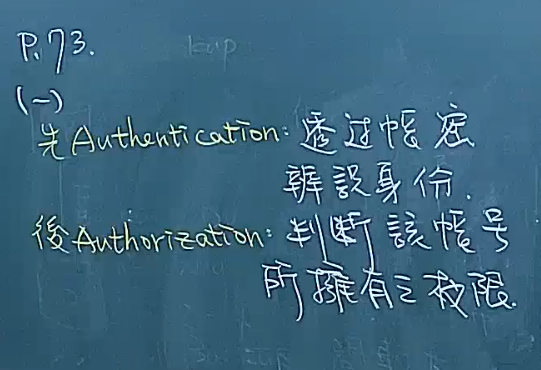 P.73.
(一)
先Authentication: 透过帳密
辨識身份.
後Authorization: 判断該帳号
所擁有之权限.